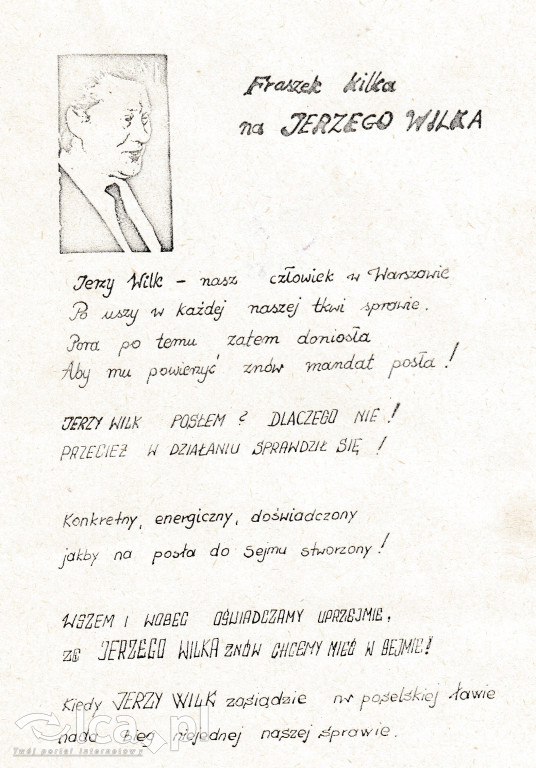 Fraszek kilka
na JERZEGO WILKA
Jerzy Wilk - nasz człowiek w Warszawie
Po uszy w każdej naszej tkwi sprawie.
Pora po temu zatem doniosła
Aby mu powierzyć znów mandat posła!
JERZY WILK POSŁEM? DLACZEGO NIE!
PRZECIEŻ W DZIAŁANIU SPRAWDZIŁ SIĘ!
Konkretny, energiczny, doświadczony
jakby na posła do Sejmu stworzony!
WSZEM I WOBEC OŚWIADCZAMY UPRZEJMIE,
ŻE JERZEGO WILKA ZNÓW CHCEMY MIEĆ W SEJMIE!
Kiedy JERZY WILK zasiądzie w poselskiej ławie
nada bieg niejednej naszej sprawie.
lca.pl
Twój portal internetowy